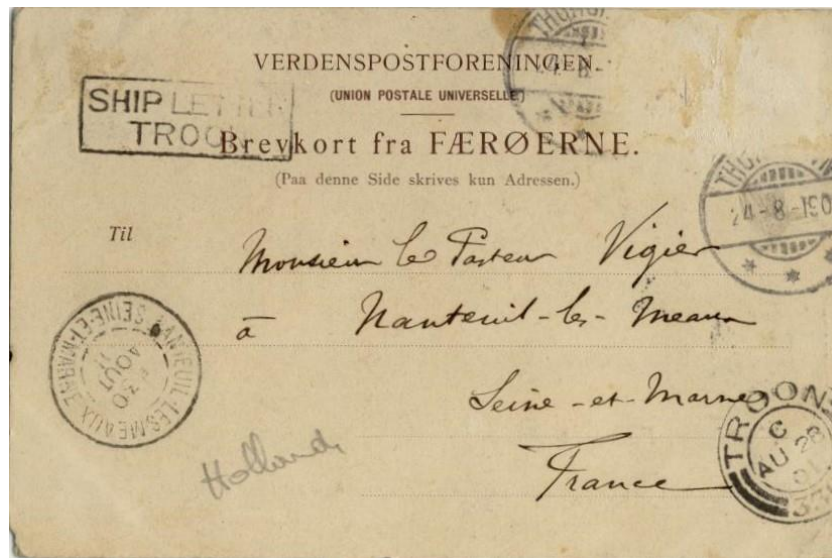 VERDENSPOSTFORENINGEN.
(UNION POSTALE UNIVERSELLE)
SHIP LETTER
TROON
Brevkort fra FÆRØERNE.
(Paa denne Side skrives kun Adressen.)
24-8-190
Til
Monsieur le Pasteur Vigier
à Nanteuil-les-Meaux
Seine-et-Marne
France
NANTEUIL-LES-MEAUX SEINE-ET-MARNE
30
AOUT
TROON
C
AU 28
01
Hollande